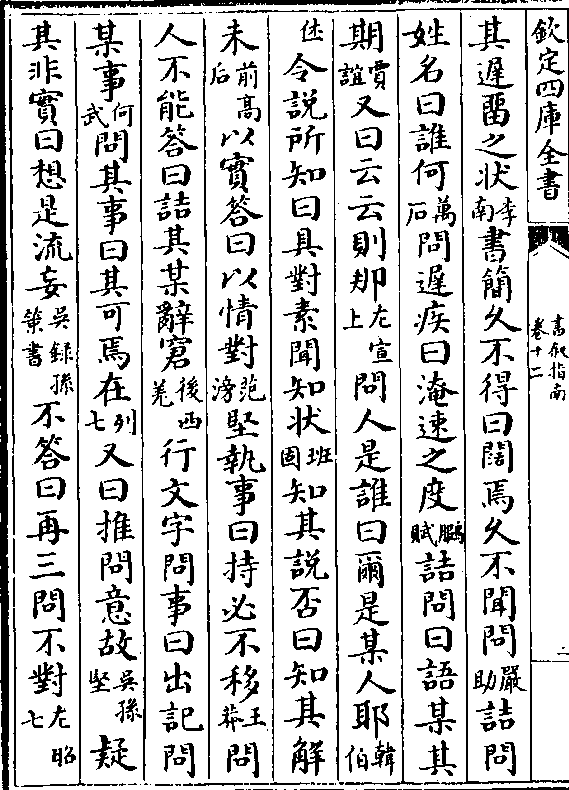 欽定四庫全書
書叙指南
卷十二
二
其遲畱之狀李南書簡久不得曰闊焉久不聞問嚴助詰問
姓名曰誰何萬石問遲疾曰淹速之度鵩賦詰問曰語某其
期賈誼又曰云云則却左宣上問人是誰曰爾是某人耶韓伯
休令說所知曰具對素聞知狀班固知其說否曰知其解
未前高后以實答曰以情對范滂堅執事曰持必不移王莽問
人不能答曰詰其某辭窘後西羌行文字問事曰出記問
某事何武問其事曰其可焉在列七又曰推問意故吳孫堅疑
其非實曰想是流妄吳録孫策書不答曰再三問不對左昭七